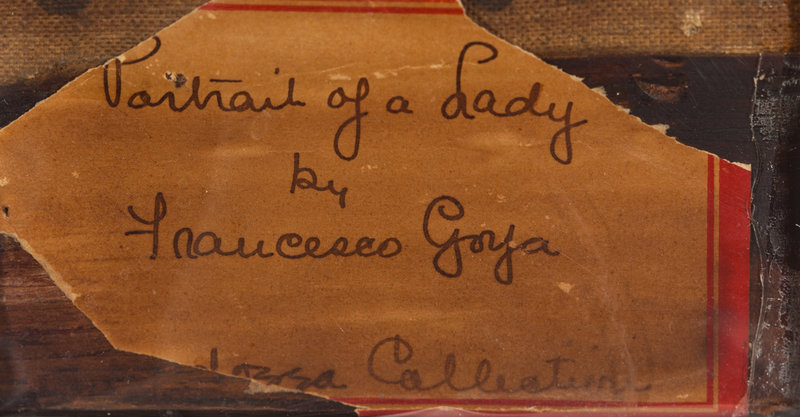 Portrait of a Lady
by
Francesco Goya
Collection